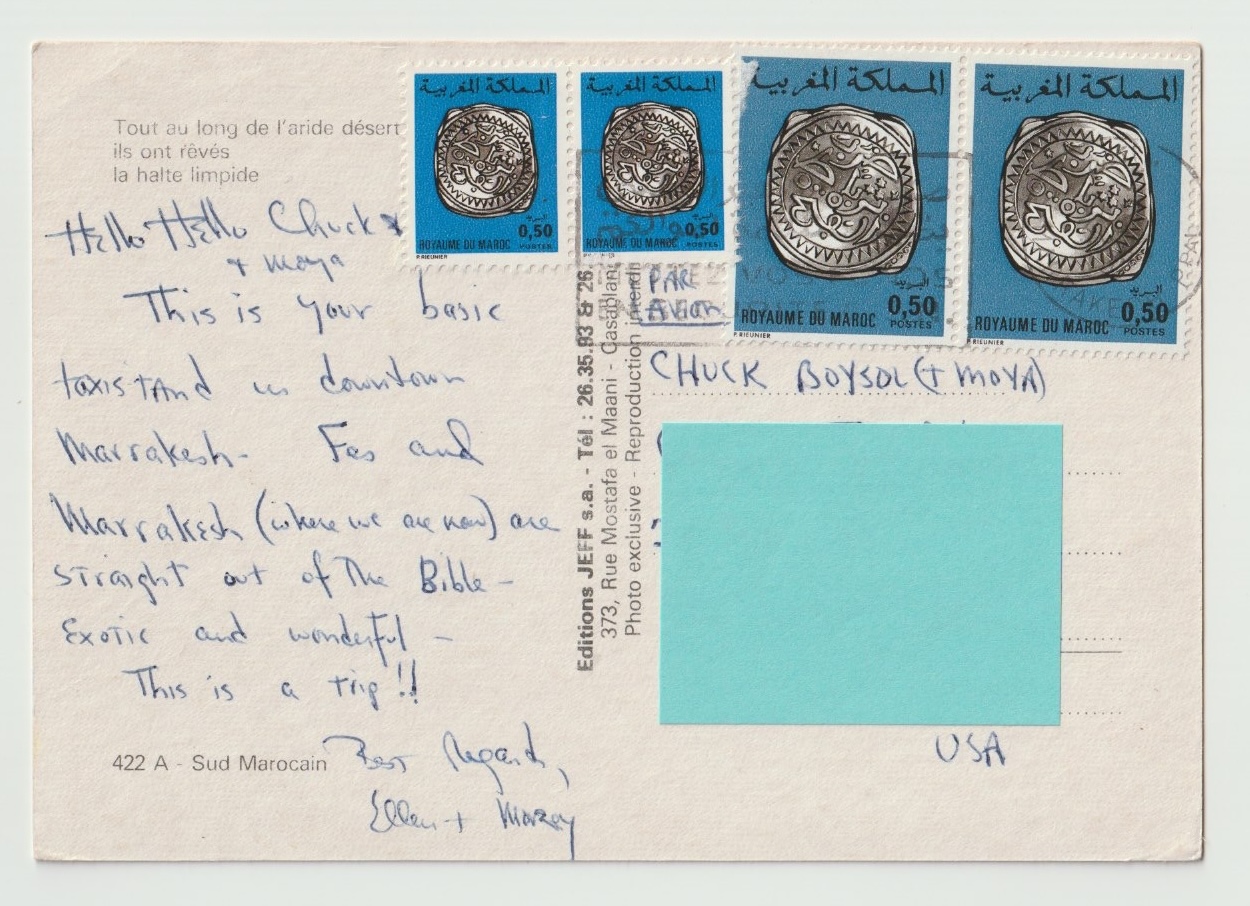 Tout au long de l'aride désert
ils ont rêvés
la halte limpide
Hello Hello Chuck
+ Moya
This is your basic
taxistand in downtown
Marrakesh- Fes and
Marrakesh (where we are now) are
straight out of The Bible -
Exotic and wonderful -
This is a trip!!
Best Regards,
Ellen +
422 A - Sud Marocain
Editions JEFF s.a. - Tél : 26.35.93 & 26.
373, Rue Mostafa el Maani - Casablan
Photo exclusive - Reproduction interdi
المملكة المغربية
البريد
0,50
ROYAUME DU MAROC POSTES
P.RIEUNIER
المملكة المغربية
البريد
0,50
ROYAUME DU MAROC POSTES
P.RIEUNIER
المملكة المغربية
البريد
0,50
ROYAUME DU MAROC POSTES
P.RIEUNIER
المملكة المغربية
البريد
0,50
ROYAUME DU MAROC POSTES
P.RIEUNIER
PAR
AVION
CHUCK BOYSOL (+ MOYA)
USA